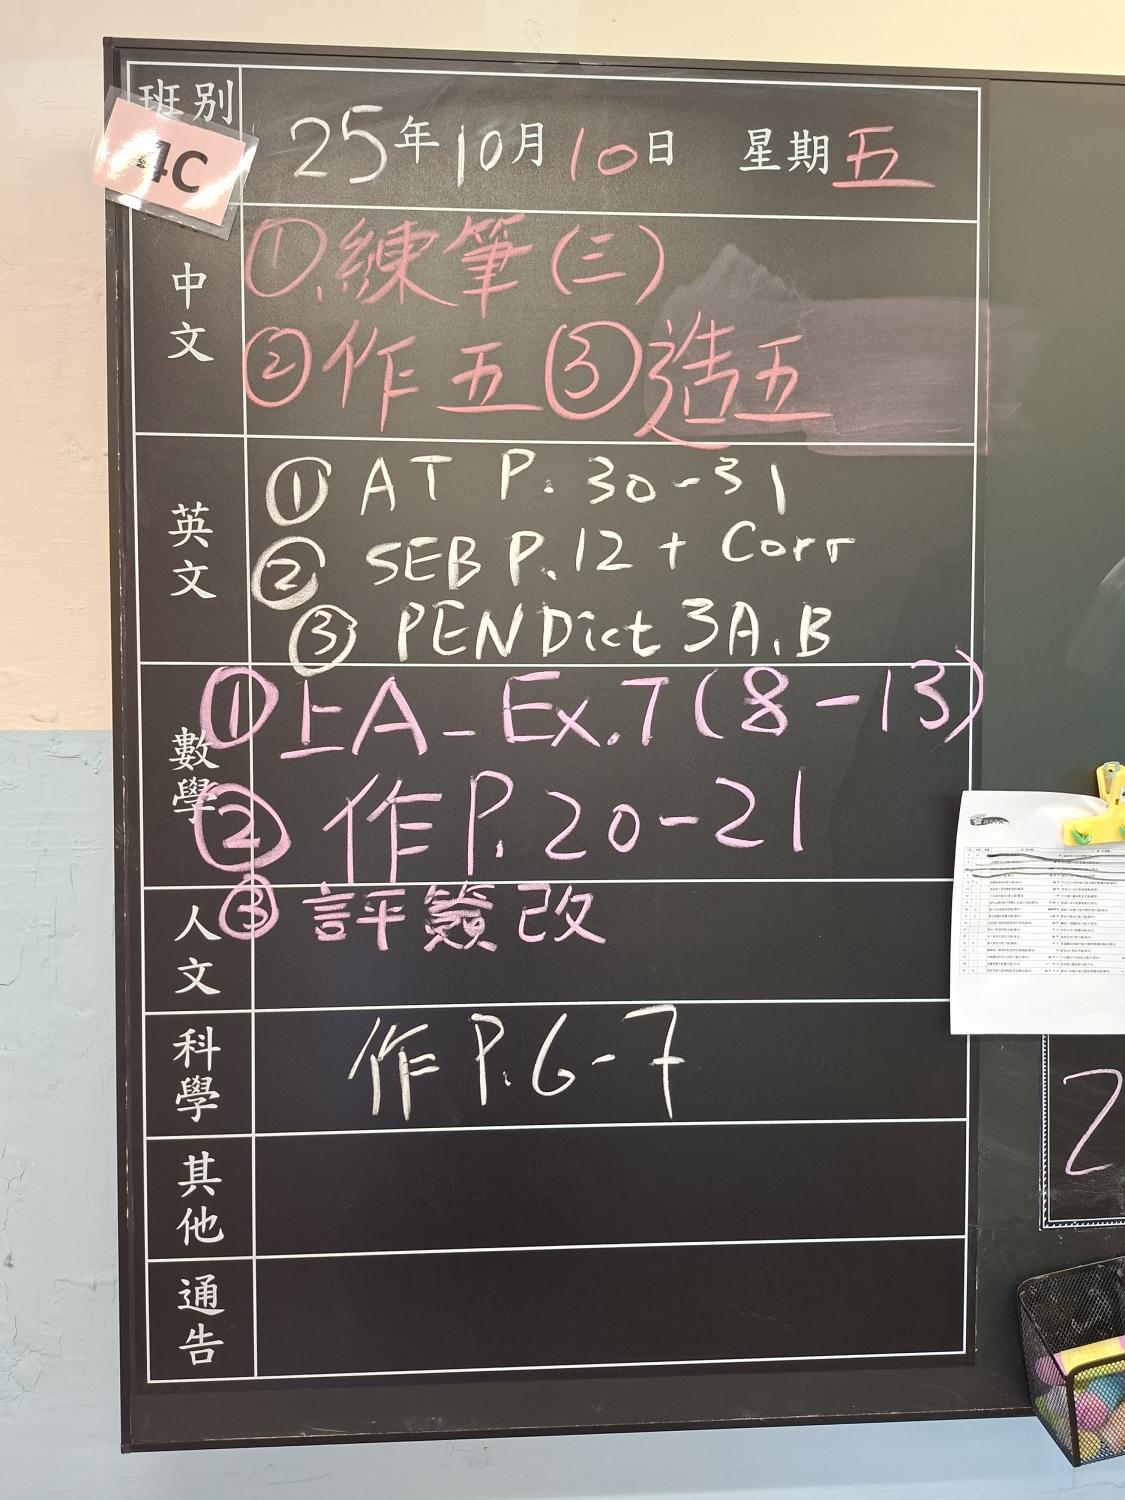 班別
4C
25年10月10日 星期五
中文
①.練筆(三)
②作五 ③造五
英文
① AT P. 30-31
② SEB P.12 + Corr
③ PENDict 3A.B
數學
①上A-Ex.7(8-13)
② 作P.20-21
③ 評簽改
人文
科學
作 P.6-7
其他
通告
2